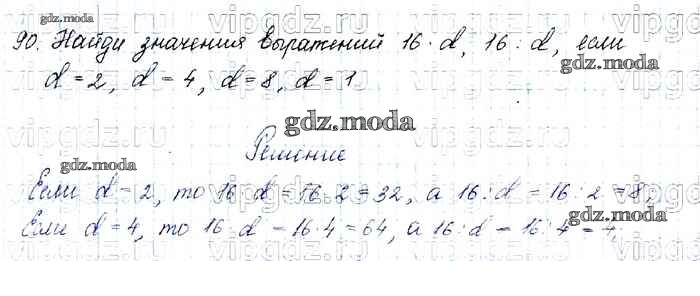 90. Найди значения выражений 16 · d, 16 : d, если
d = 2, d = 4, d = 8, d = 1
Решение
Если d = 2, то 16 d = 16 · 2 = 32, а 16 : d = 16 : 2 = 8,
Если d = 4, то 16 · d = 16 · 4 = 64, а 16 : d = 16 : 4 = 4,
gdz.moda
gdz.moda
gdz.moda
gdz.moda
gdz.moda
vipgdz.ru